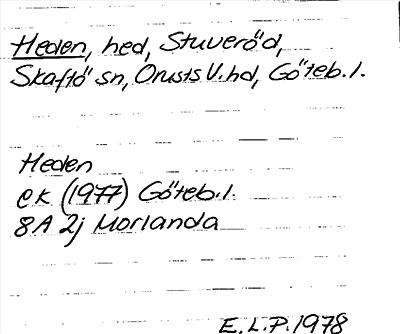 Heden, hed, Stuveröd,
Skaftö sn, Orusts V. hd, Göteb. l.
Heden
ek (1977) Göteb. l.
8A 2j Morlanda
E. L. P. 1978